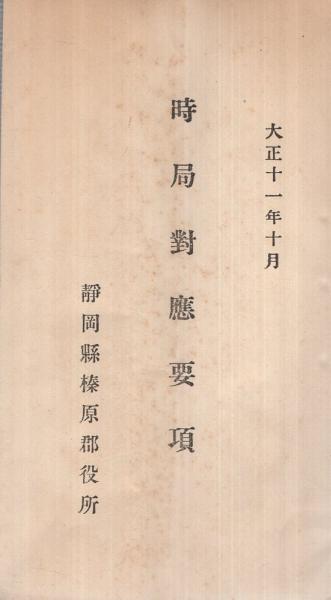 大正十一年十月
時局對應要項
靜岡縣榛原郡役所